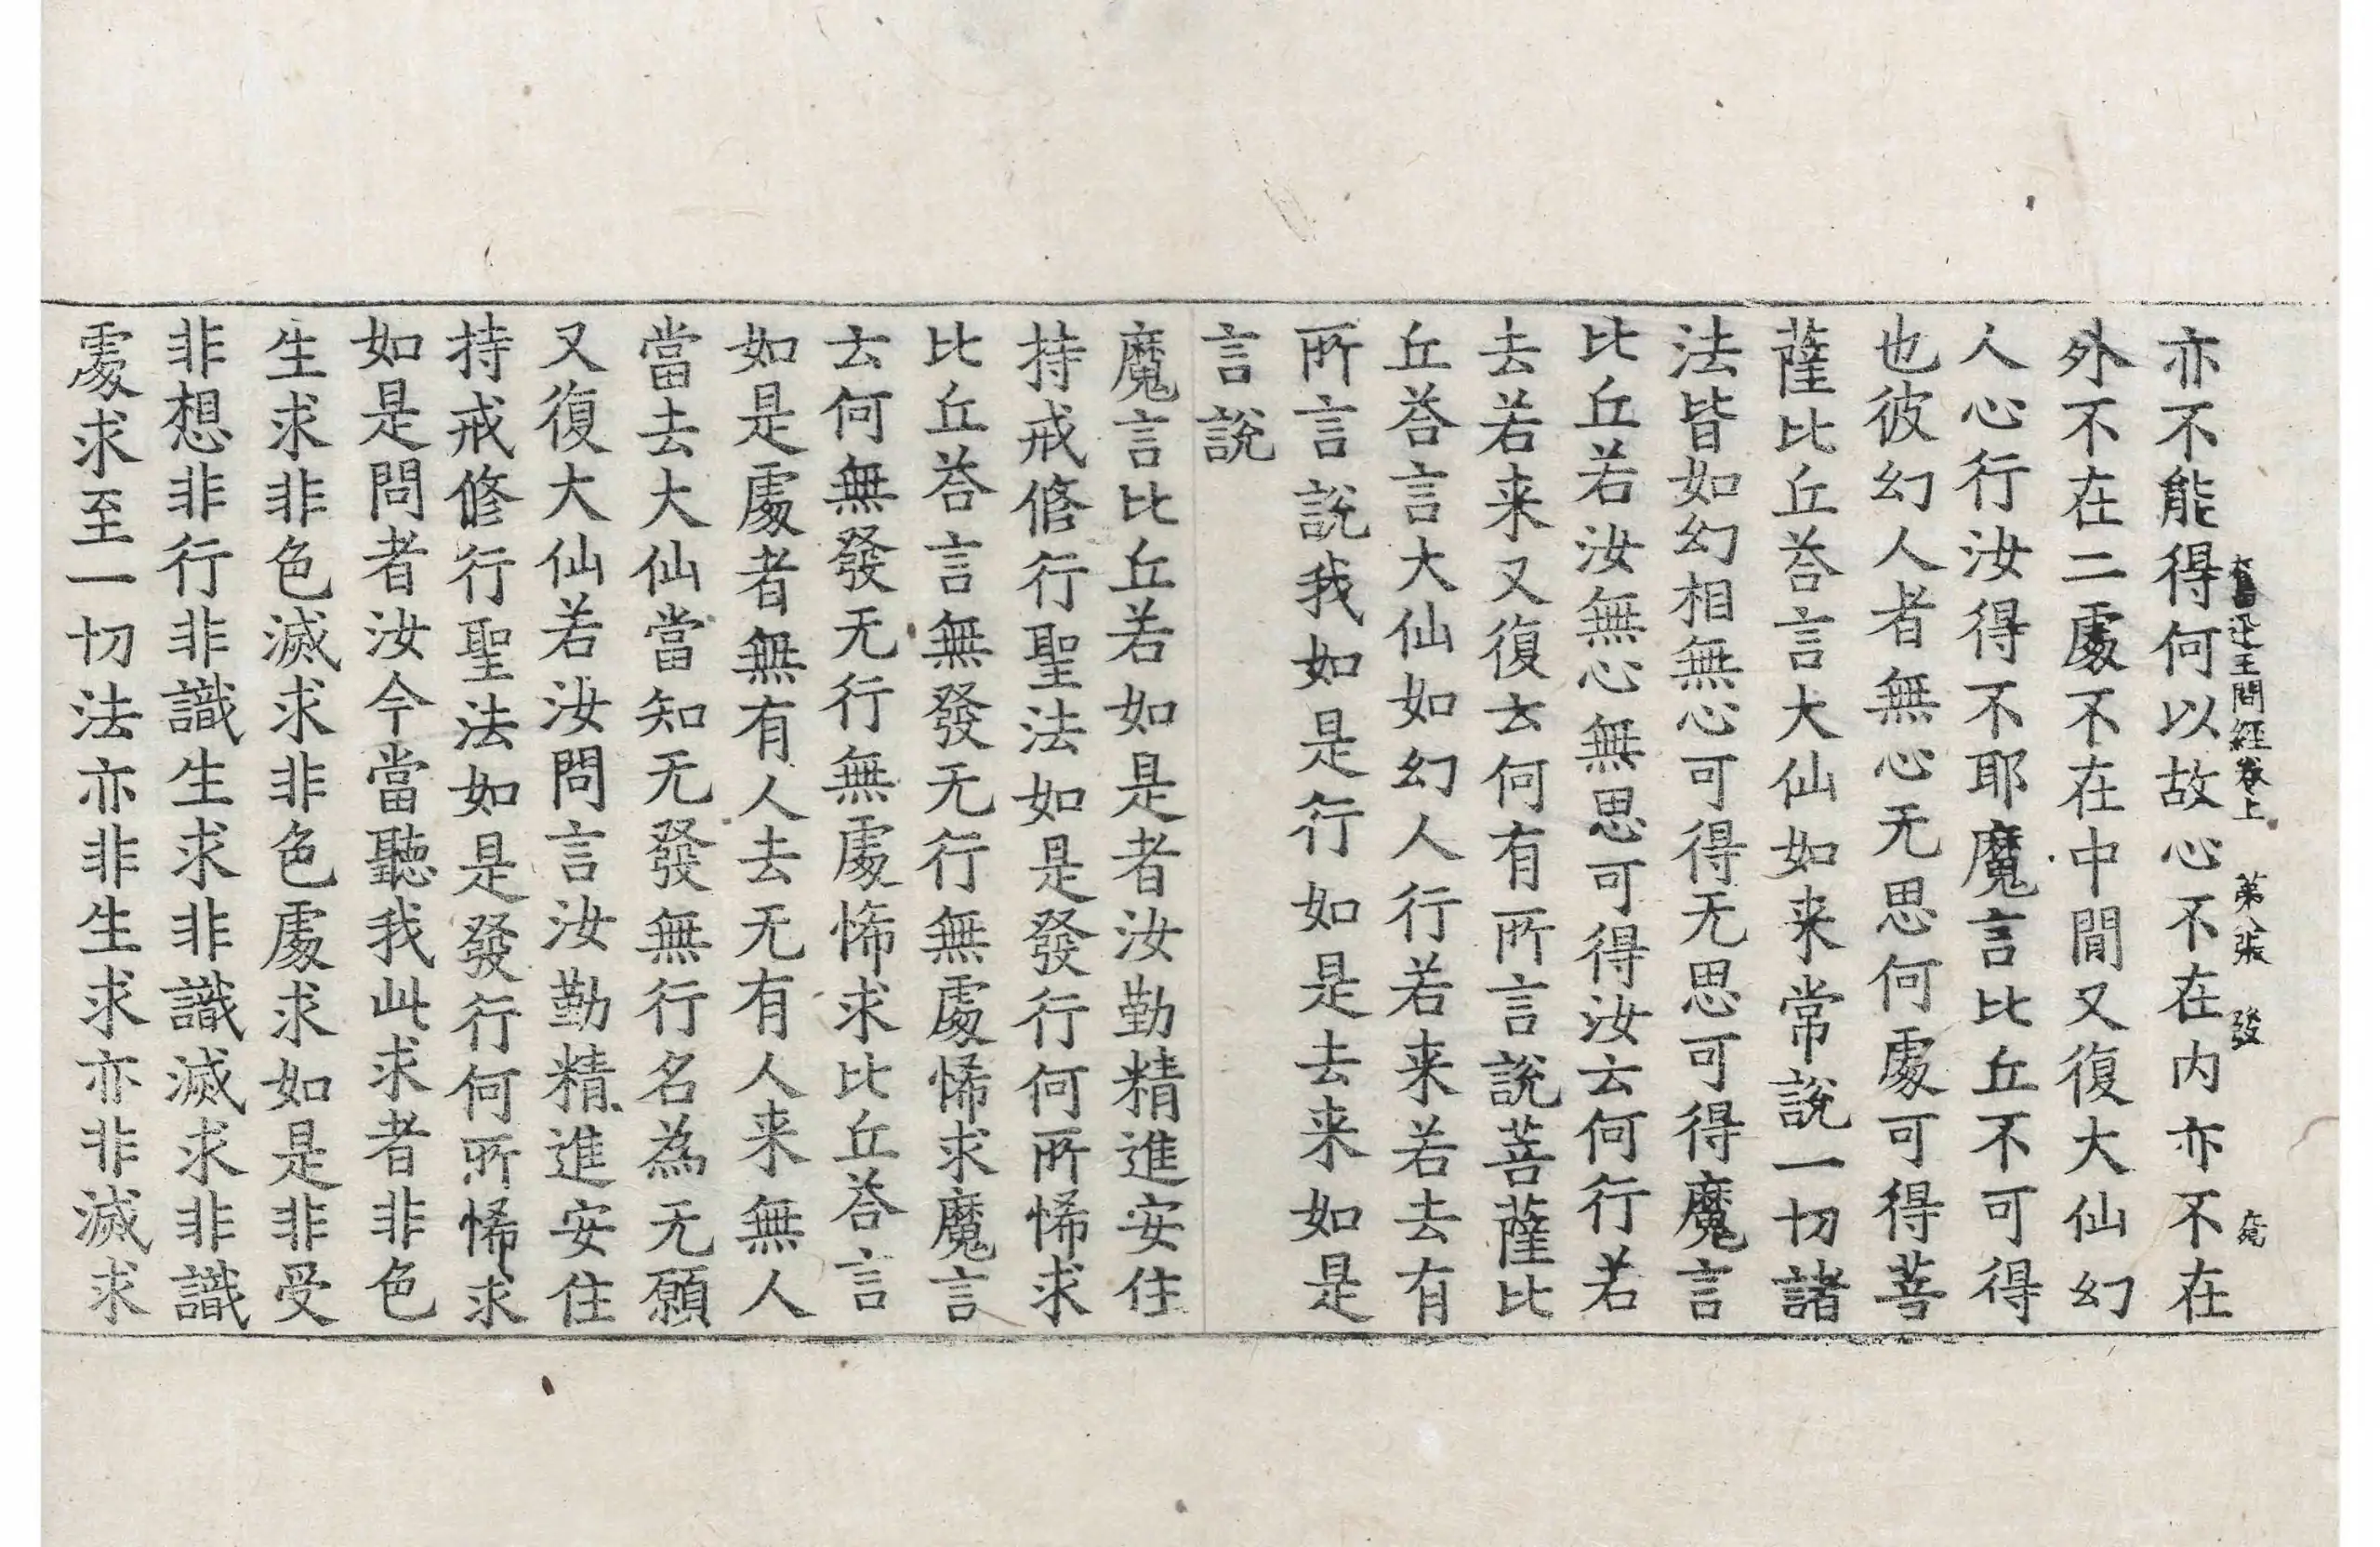 奮迅王問經卷上 第八張 發
亦不能得何以故心不在内亦不在
外不在二處不在中間又復大仙幻
人心行汝得不耶魔言比丘不可得
也彼幻人者無心无思何處可得菩
薩比丘荅言大仙如来常說一切諸
法皆如幻相無心可得无思可得魔言
比丘若汝無心無思可得汝云何行若
去若来又復云何有所言說菩薩比
丘荅言大仙如幻人行若来若去有
所言說我如是行如是去来如是
言說
魔言比丘若如是者汝勤精進安住
持戒修行聖法如是發行何所悕求
比丘荅言無發无行無處悕求魔言
云何無發无行無處悕求比丘荅言
如是處者無有人去无有人来無人
當去大仙當知无發無行名為无願
又復大仙若汝問言汝勤精進安住
持戒修行聖法如是發行何所悕求
如是問者汝今當聽我此求者非色
生求非色滅求非色處求如是非受
非想非行非識生求非識滅求非識
處求至一切法亦非生求亦非滅求